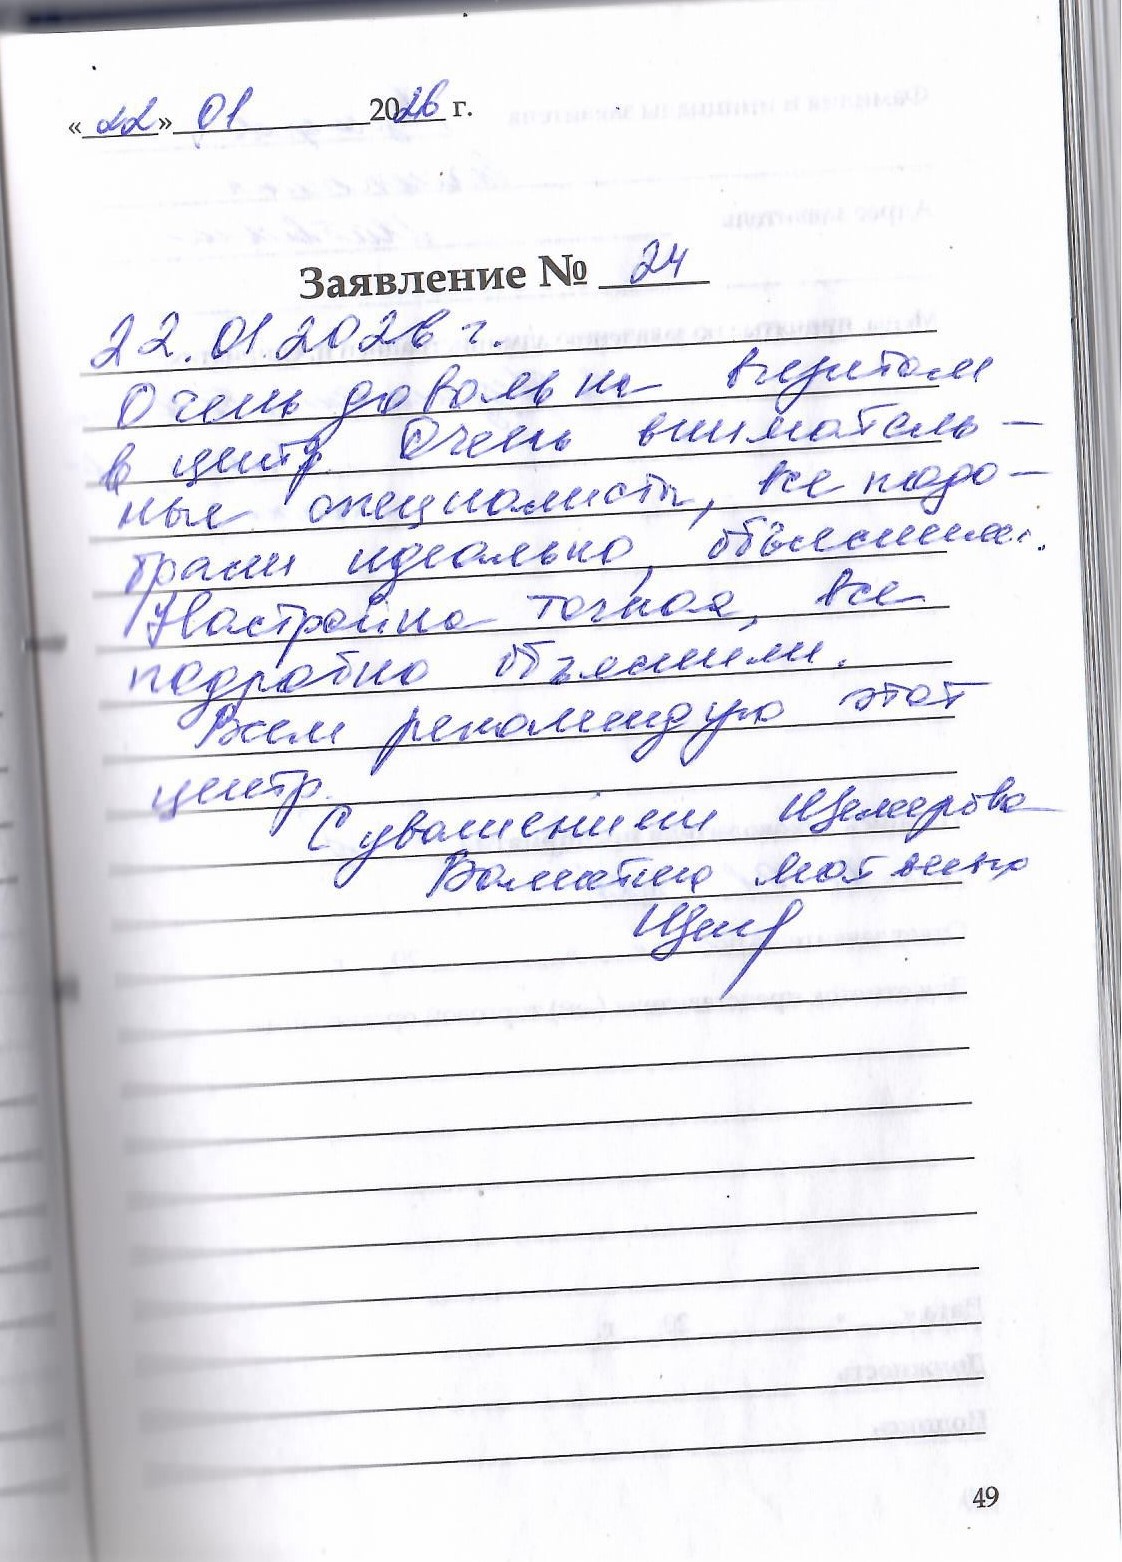 «22» 01 2026 г.
Заявление № 24
22.01 2026 г.
Очень довольна визитом
в центр. Очень вниматель-
ные специалисты, все подо-
брали идеально, объяснили.
Настройка точная, все
подробно объяснили.
Всем рекомендую этот
центр.
С уважением
Валентина
49